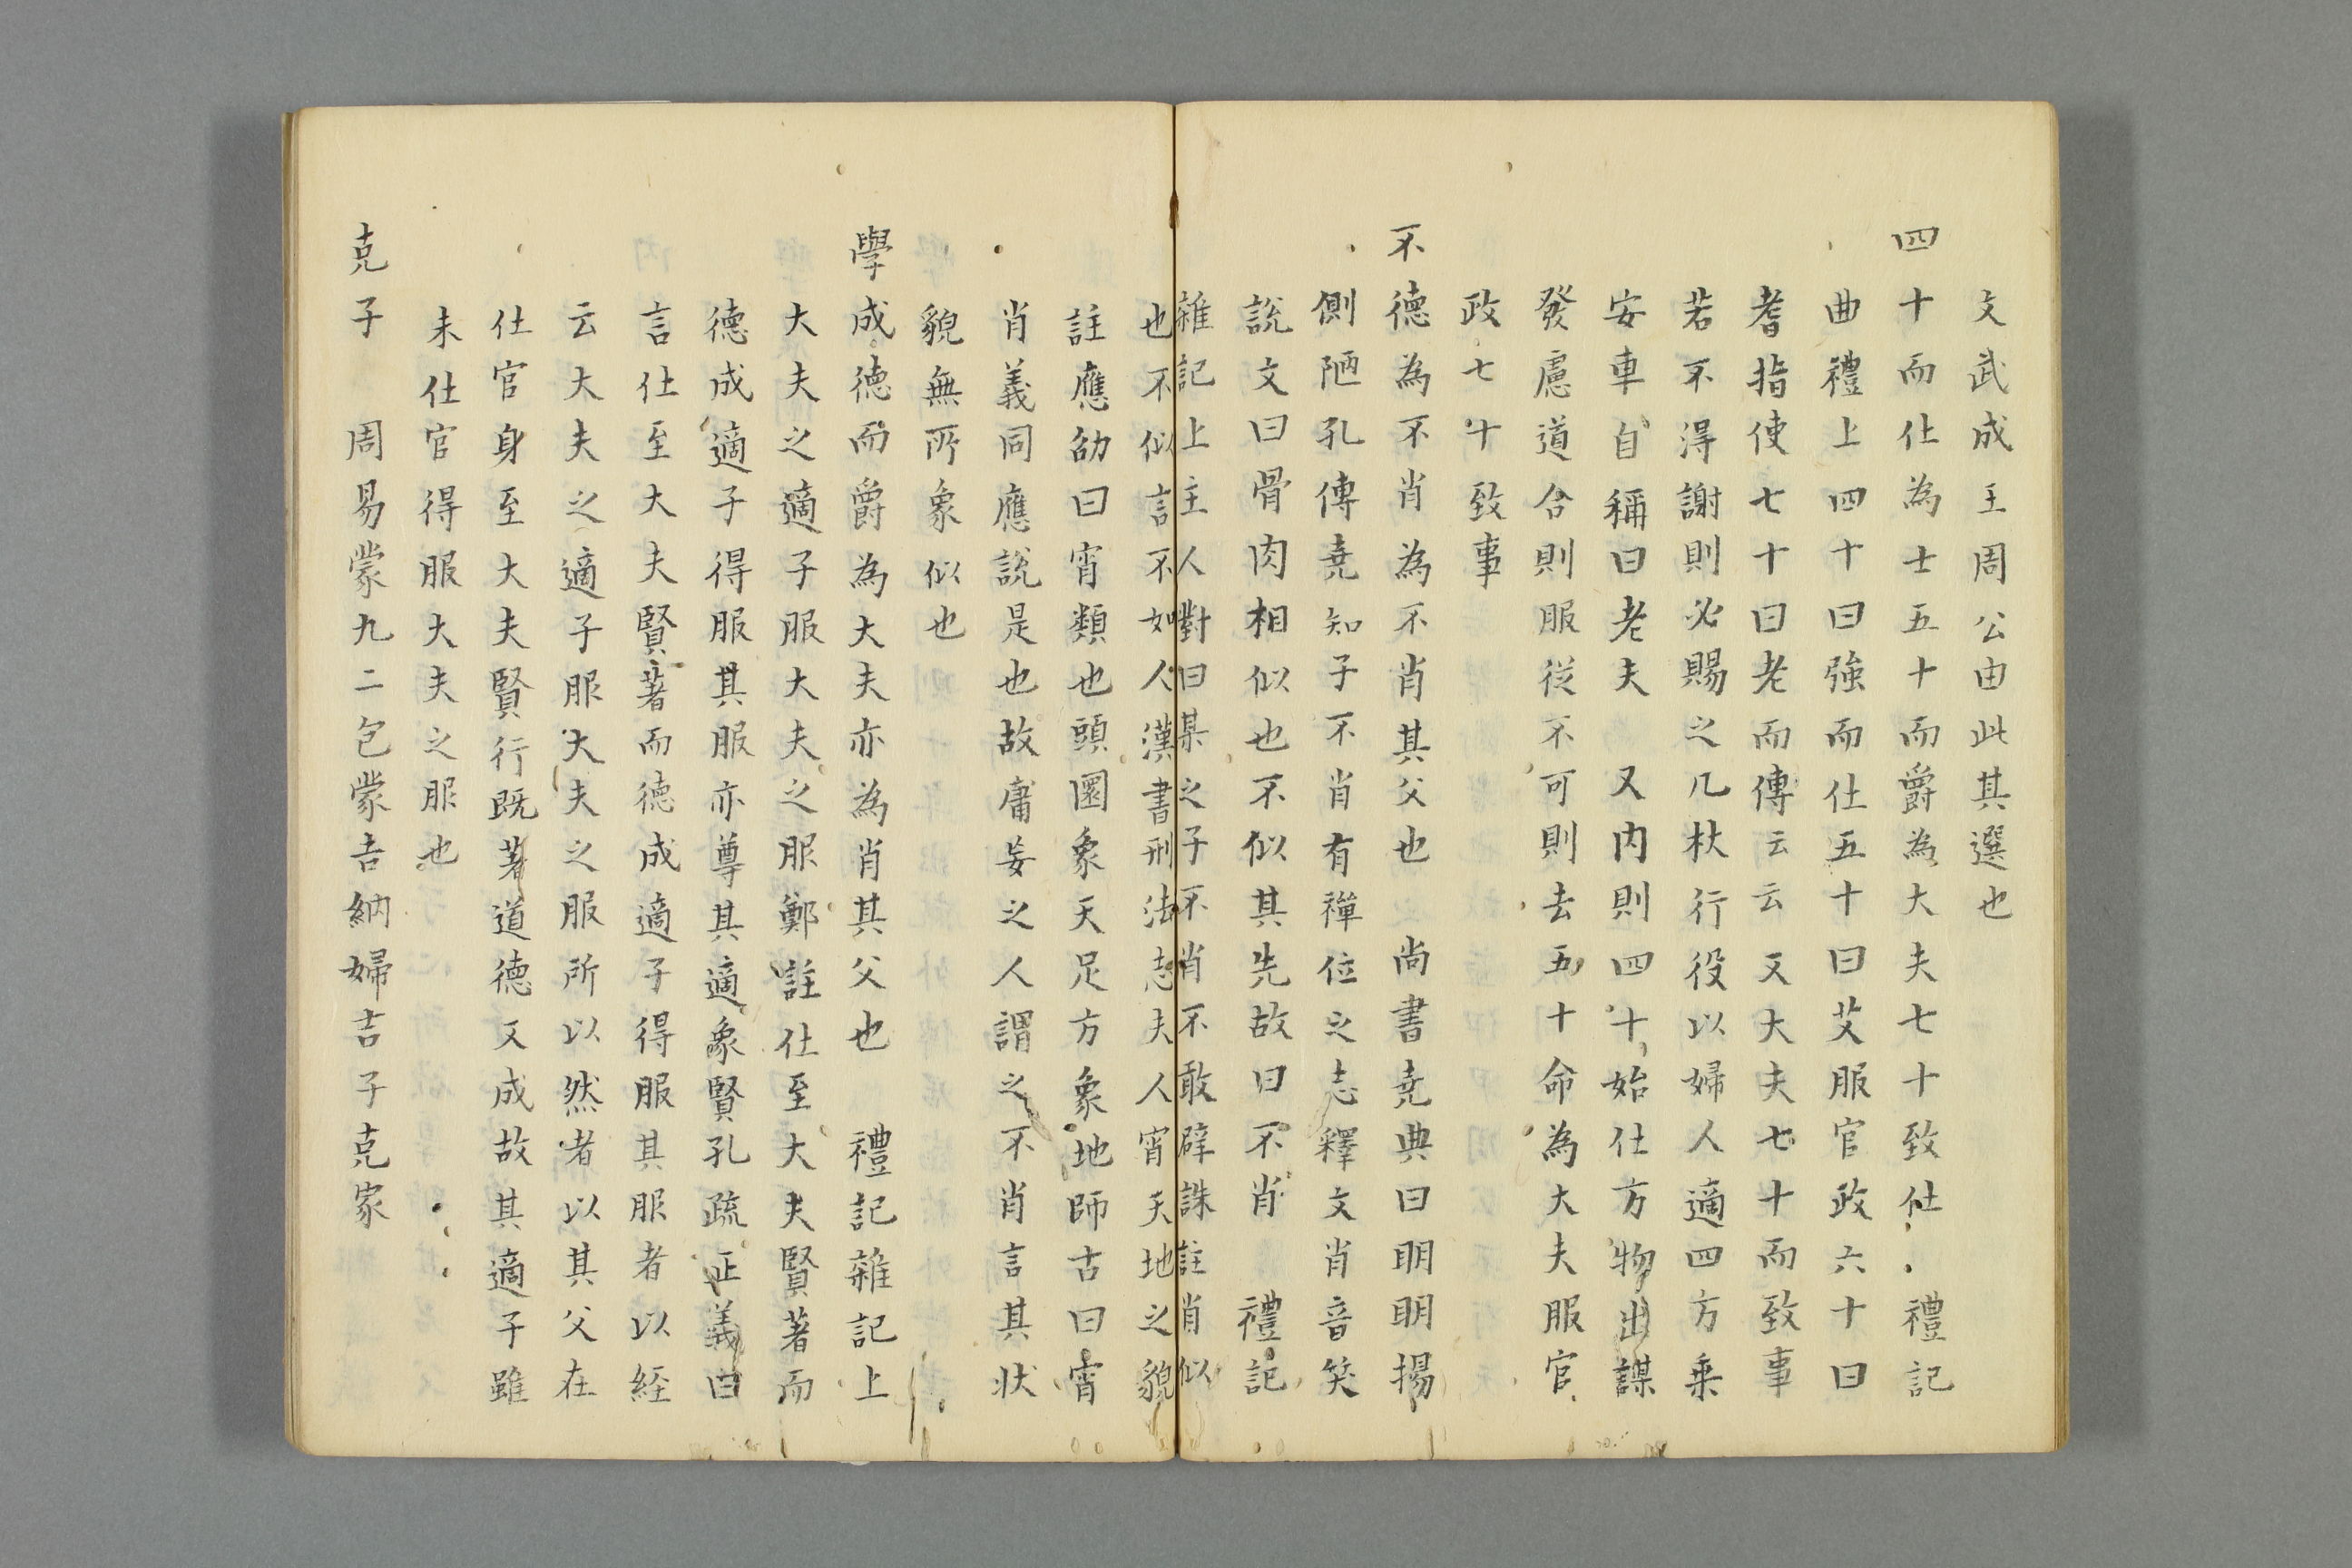 文武成王周公由此其選也
四十而仕為士五十而爵為大夫七十致仕 禮記
曲禮上四十曰強而仕五十曰艾服官政六十曰
耆指使七十曰老而傳云云 又大夫七十而致事
若不得謝則必賜之几杖行役以婦人適四方乗
安車自稱曰老夫 又内則四十始仕方物出謀
發慮道合則服従不可則去五十命為大夫服官
政七十致事
不德為不肖為不肖其父也 尚書尭典曰明明揚
側陋孔傳尭知子不肖有禅位之志釋文肖音笑
説文曰骨肉相似也不似其先故曰不肖 禮記
雑記上主人對曰某之子不肖不敢辟誅註肖似
也不似言不如人漢書刑法志夫人宵天地之貌
註應劭曰宵類也頭圜象天足方象地師古曰宵
肖義同應説是也故庸妄之人謂之不肖言其状
貌無所象似也
學成德而爵為大夫亦為肖其父也 禮記雜記上
大夫之適子服大夫之服鄭註仕至大夫賢著而
德成適子得服其服亦尊其適象賢孔疏正義曰
言仕至大夫賢著而徳成適子得服其服者以経
云大夫之適子服大夫之服所以然者以其父在
仕官身至大夫賢行既著道德又成故其適子雖
未仕官得服大夫之服也
克子 周易蒙九二包蒙吉納婦吉子克家